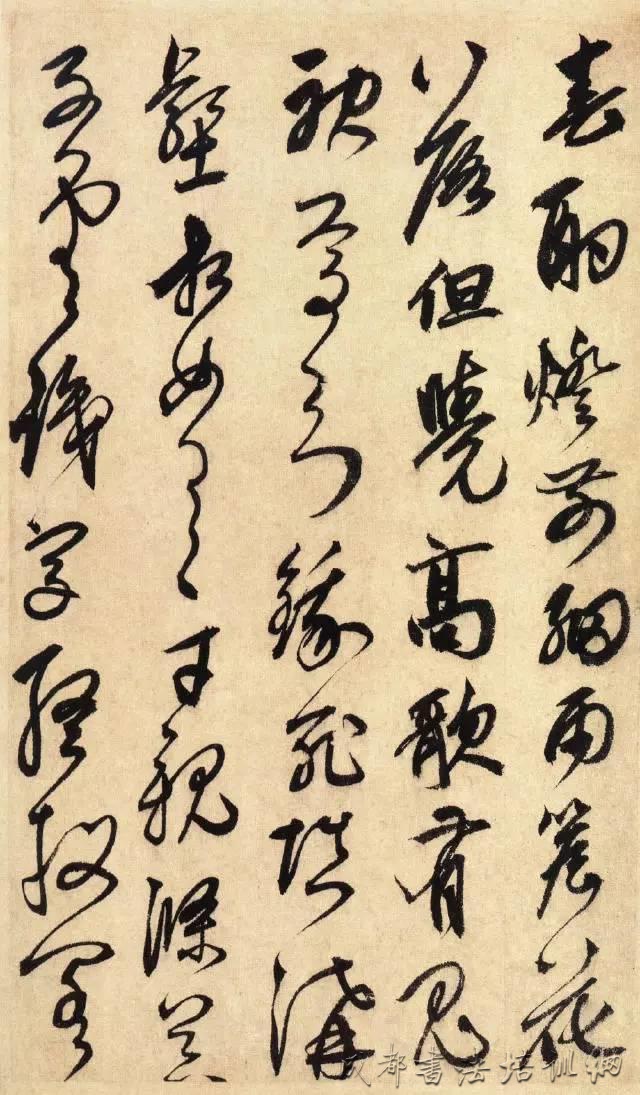 春酌燈前細雨簷花
落但覺高歌有鬼
神焉知餓死填溝
壑相如逸才親滌器
子雲識字終投閣
成都书法培训网